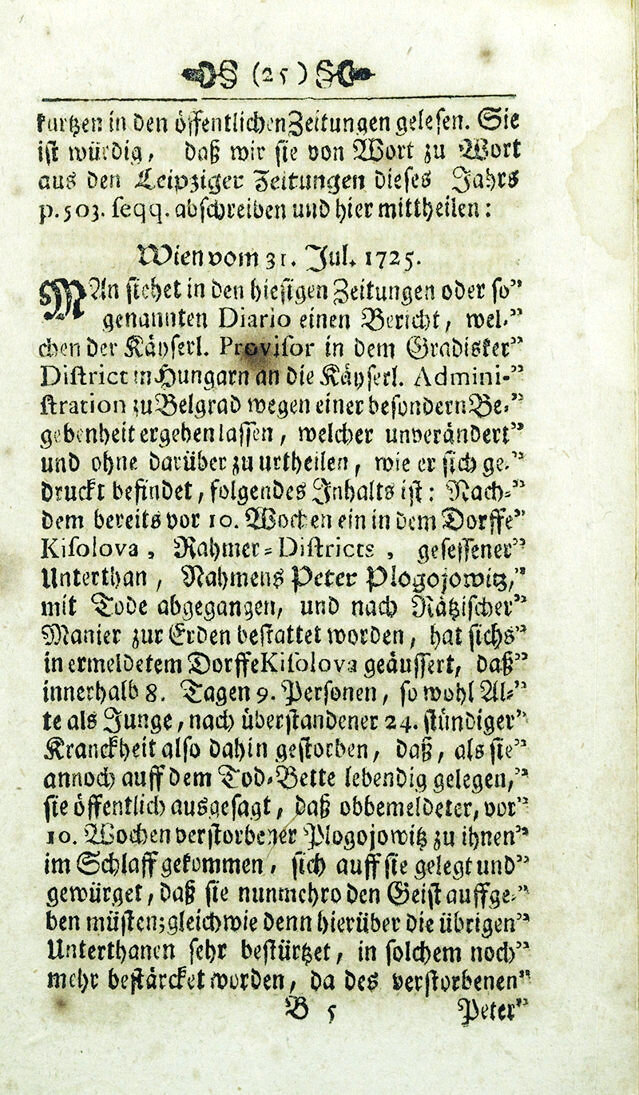 § (25) §
kurtzen in den öffentlichen Zeitungen gelesen. Sie
ist würdig, daß wir sie von Wort zu Wort
aus den Leipziger Zeitungen dieses Jahrs
p. 503. seqq. abschreiben und hier mittheilen:
Wien vom 31. Jul. 1725.
MAn siehet in den hiesigen Zeitungen oder so"
genannten Diario einen Bericht, wel-"
chen der Käyserl. Provisor in dem Gradisker"
District in Hungarn an die Käyserl. Admini-"
stration zu Belgrad wegen einer besondern Be-"
gebenheit ergehen lassen, welcher unverändert"
und ohne darüber zu urtheilen, wie er sich ge-"
druckt befindet, folgendes Inhalts ist: Nach-"
dem bereits vor 10. Wochen ein in dem Dorffe"
Kisolova, Rahmer-Districts, gesessener"
Unterthan, Nahmens Peter Plogojowitz,"
mit Tode abgegangen, und nach Rätzischer"
Manier zur Erden bestattet worden, hat sichs"
in ermeldetem Dorffe Kisolova geäussert, daß"
innerhalb 8. Tagen 9. Personen, so wohl Al-"
te als Junge, nach überstandener 24. stündiger"
Kranckheit also dahin gestorben, daß, als sie"
annoch auff dem Tod-Bette lebendig gelegen,"
sie öffentlich ausgesagt, daß obbemeldeter, vor"
10. Wochen verstorbener Plogojowitz zu ihnen"
im Schlaff gekommen, sich auff sie gelegt und"
gewürget, daß sie nunmehro den Geist auffge-"
ben müsten; gleichwie denn hierüber die übrigen"
Unterthanen sehr bestürtzet, in solchem noch"
mehr bestärcket worden, da des verstorbenen"
B 5 Peter"